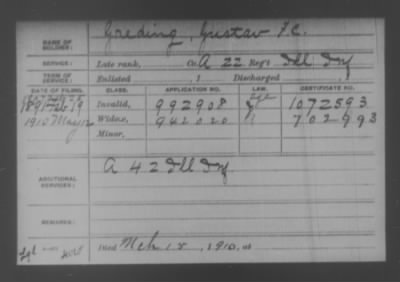 NAME OF SOLDIER: Greding, Gustav F.C.
SERVICE: Late rank, Co. A 22 Reg't Ill Inf
TERM OF SERVICE: Enlisted , 1 Discharged , 1
DATE OF FILING. CLASS. APPLICATION NO. LAW. CERTIFICATE NO.
1891 Feb 19 Invalid, 992908 1072593
1910 May 12 Widow, 942020 702993
Minor,
ADDITIONAL SERVICES: A 42 Ill Inf
REMARKS:
Died Mch 18, 1910, at